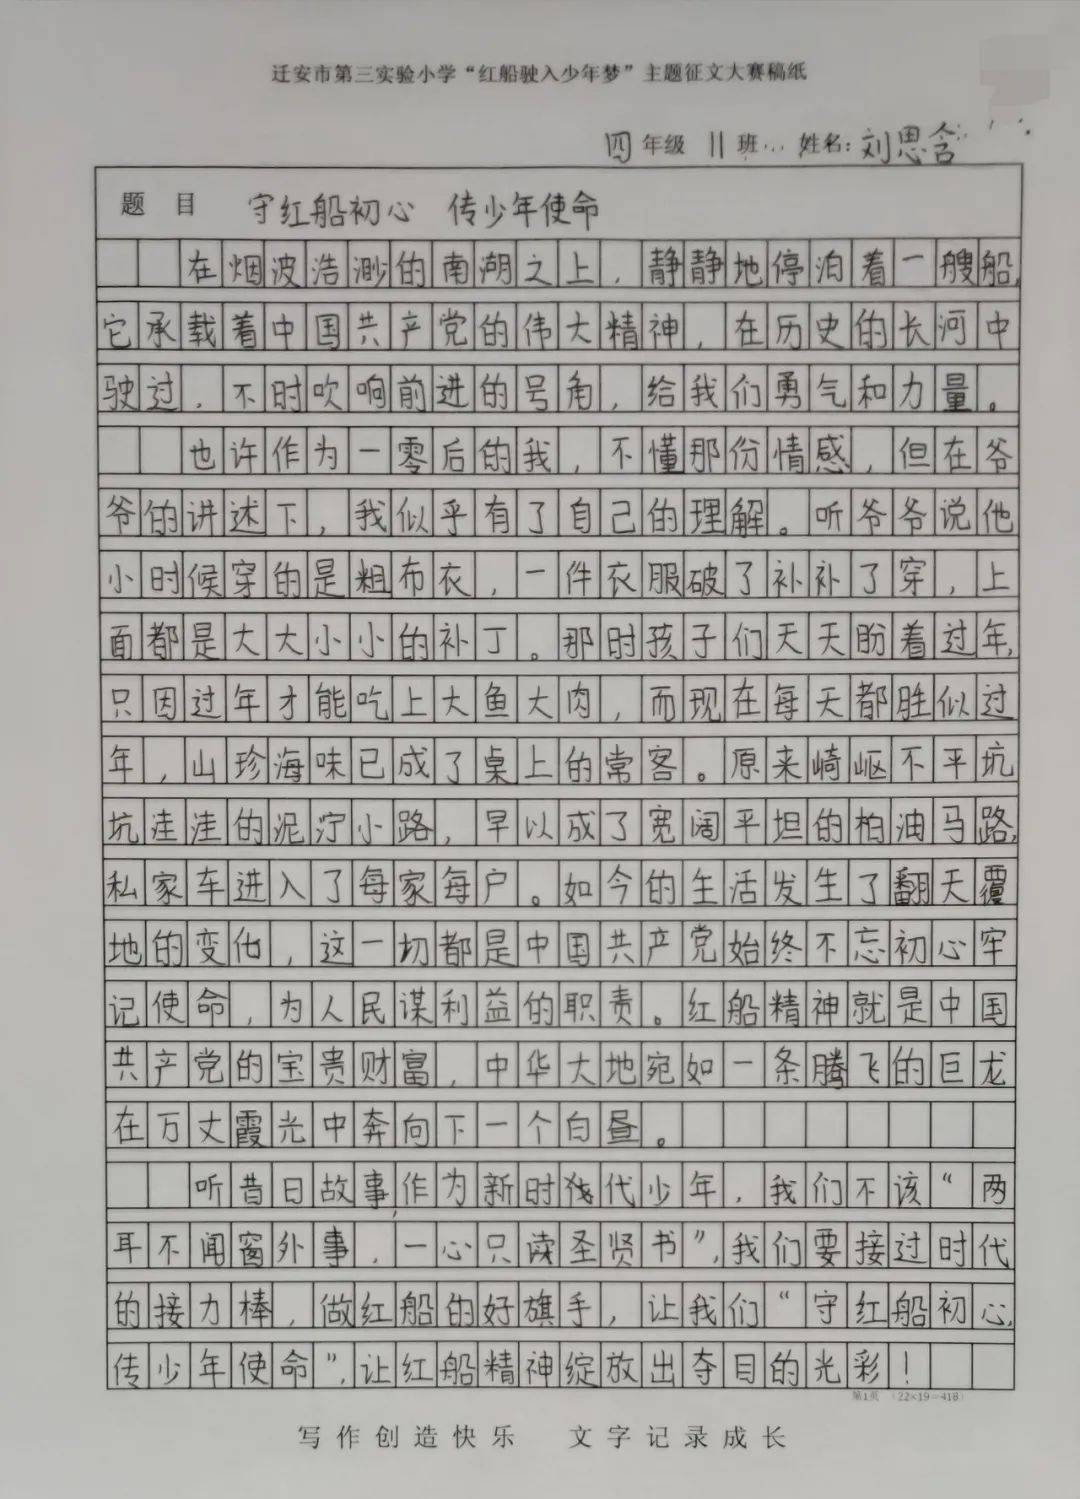 迁安市第三实验小学“红船驶入少年梦”主题征文大赛稿纸
四年级 11班 姓名:刘思含
题目 守红船初心 传少年使命
在烟波浩渺的南湖之上,静静地停泊着一艘船,
它承载着中国共产党的伟大精神,在历史的长河中
驶过,不时吹响前进的号角,给我们勇气和力量。
也许作为一零后的我,不懂那份情感,但在爷
爷的讲述下,我似乎有了自己的理解。听爷爷说他
小时候穿的是粗布衣,一件衣服破了补补了穿,上
面都是大大小小的补丁。那时孩子们天天盼着过年,
只因过年才能吃上大鱼大肉,而现在每天都胜似过
年,山珍海味已成了桌上的常客。原来崎岖不平坑
坑洼洼的泥泞小路,早以成了宽阔平坦的柏油马路,
私家车进入了每家每户。如今的生活发生了翻天覆
地的变化,这一切都是中国共产党始终不忘初心牢
记使命,为人民谋利益的职责。红船精神就是中国
共产党的宝贵财富,中华大地宛如一条腾飞的巨龙
在万丈霞光中奔向下一个白昼。
听昔日故事,作为新时代少年,我们不该“两
耳不闻窗外事,一心只读圣贤书”,我们要接过时代
的接力棒,做红船的好旗手,让我们“守红船初心,
传少年使命”,让红船精神绽放出夺目的光彩!
第1页 (22×19=418)
写作创造快乐 文字记录成长